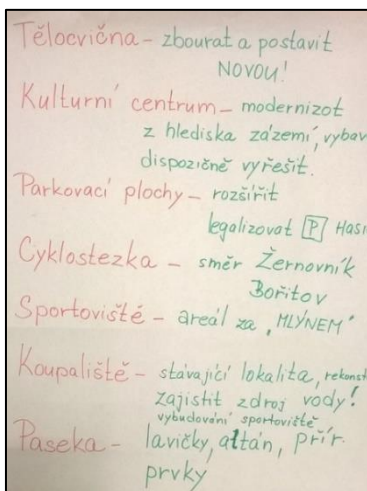 Tělocvična – zbourat a postavit
NOVOU!
Kulturní centrum – modernizot
z hlediska zázemí, vybav
dispozičně vyřešit.
Parkovací plochy – rozšířit
legalizovat P Hasi
Cyklostezka – směr Žernovník
Bořitov
Sportoviště – areál za „MLÝNEM"
Koupaliště – stávající lokalita, rekonst
zajistit zdroj vody!
vybudování sportoviště
Paseka – lavičky, altán, přír.
prvky